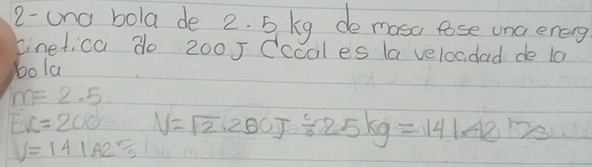 2-una bola de 2.5 kg de masa pose una energ
cinetica de 200J Cccal es la velocdad de la
bola
m= 2.5
Ec=200 V=√2.200J÷2.5kg=141.42 m/s
V=141.42 m/s